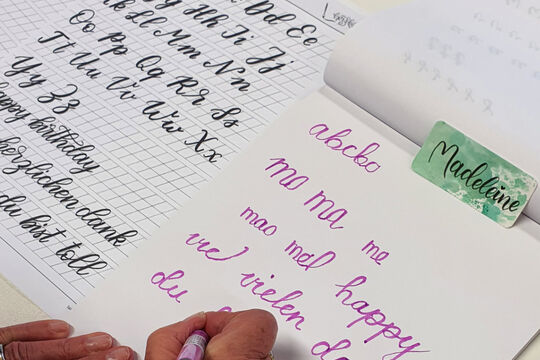 Dd Ee
Hh Ii Jj
Kk Ll Mm Nn
Oo Pp Qq Rr Ss
Tt Uu Vv Ww Xx
Yy Zz
happy birthday
herzlichen dank
du bist toll
Madeleine
abcko
ma ma me
mao mal happy
vie vielen
du